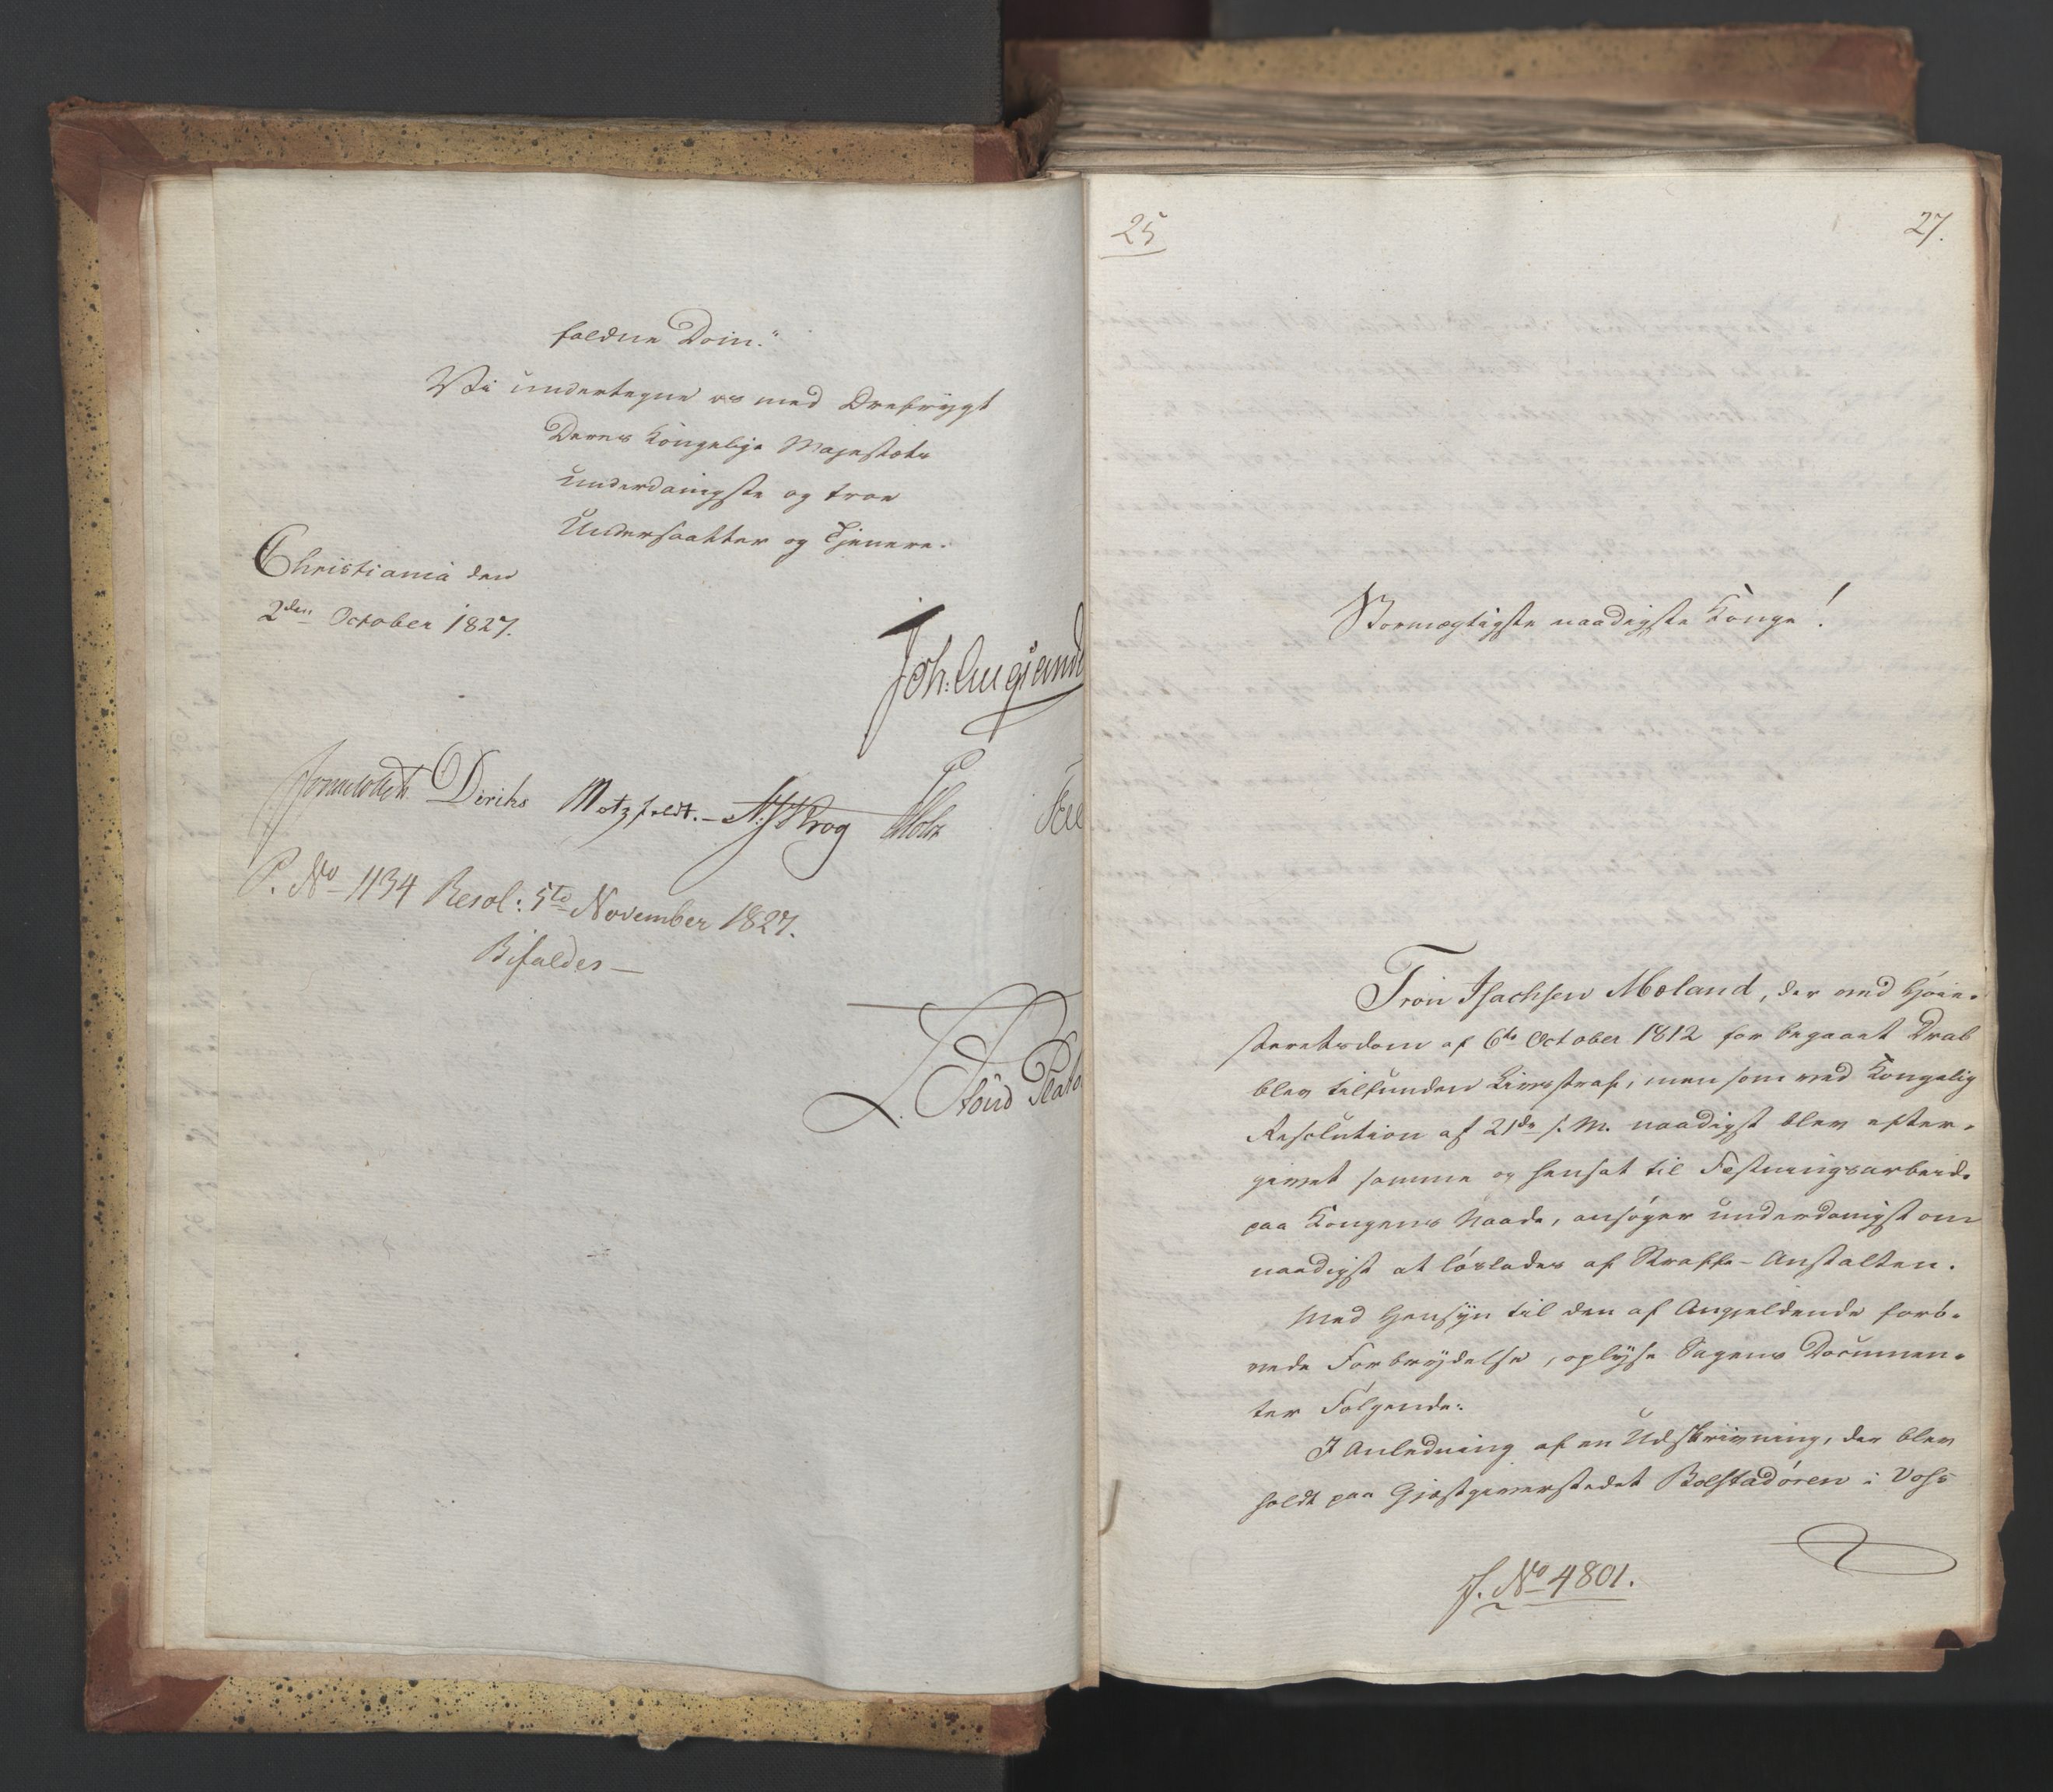 faldne Dom."
Vi undertegne os med Ærefrygt
Deres Kongelige Majestæts
underdanigste og troe
Undersaatter og Tjenere.
Christiania den
2den October 1827.
Joh: Aug: Sand
Sommerhielm Diriks Motzfeldt. N. J. Krog Holst
P. No 1134 Resol: 5te November 1827.
Bifaldes —
L. Stoud Plato
25
27.
Stormægtigste naadigste Konge!
Tron Isachsen Moland, der ved Høie-
steretsdom af 6te October 1812 for begaaet Drab
blev tilfunden Livsstraf; men som ved Kongelig
Resolution af 21de s. M. naadigst blev efter-
givet samme og hensat til Fæstningsarbeid
paa Kongens Naade, ansøger underdanigst om
naadigst at løslades af Straffe-Anstalten.
Med Hensyn til den af Angjeldende forö-
vede Forbrydelse, oplyse Sagens Documen-
ter Følgende:
I Anledning af en Udskrivning, der blev
holdt paa Gjæstgiverstedet Bolstadøren i Voss
J. No 4801.